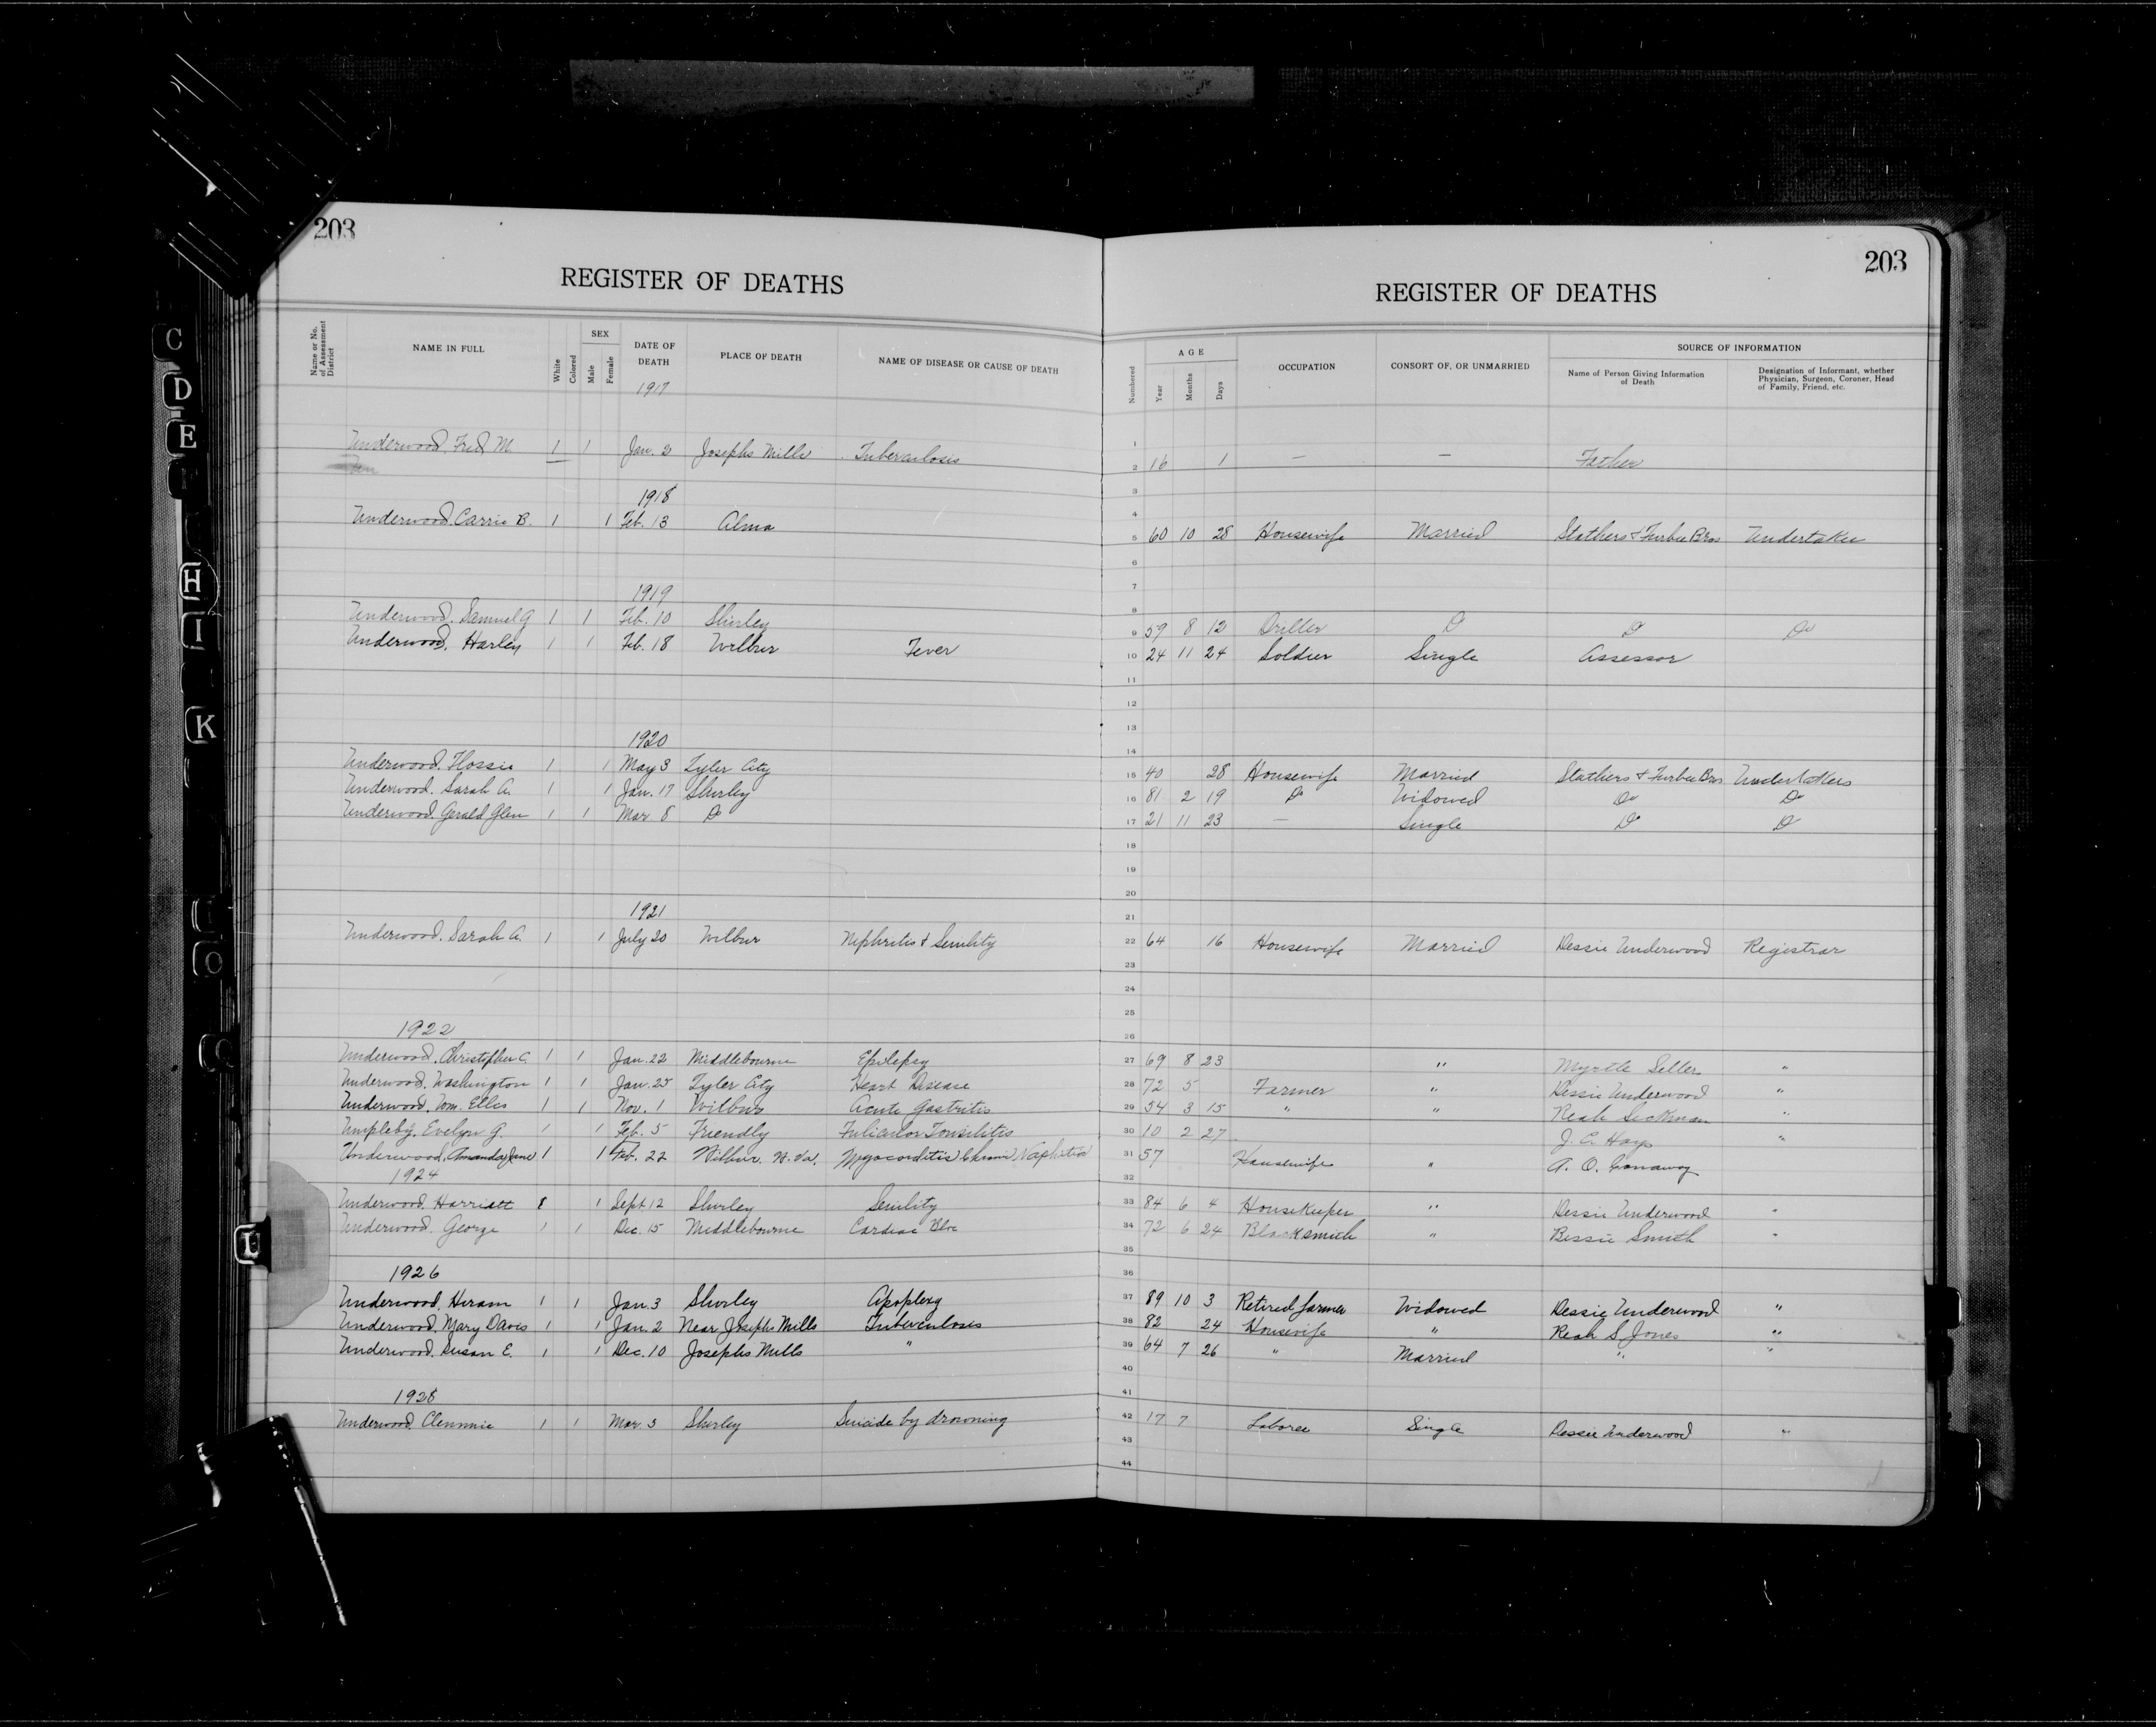 203
REGISTER OF DEATHS
Name or No. of Assessment District
NAME IN FULL
White
Colored
SEX
Male
Female
DATE OF DEATH
PLACE OF DEATH
NAME OF DISEASE OR CAUSE OF DEATH
1917
Underwood, Fred M. 1 1 Jan. 2 Josephs Mills Tuberculosis
1918
Underwood, Carrie B. 1 1 Feb. 13 Alma
1919
Underwood, Samuel G 1 1 Feb. 10 Shirley
Underwood, Harley 1 1 Feb. 18 Wilbur Fever
1920
Underwood, Flossie 1 1 May 3 Tyler City
Underwood, Sarah A. 1 1 Jan. 17 Shirley
Underwood, Gerald Glen 1 1 Mar. 8 Do
1921
Underwood, Sarah A. 1 1 July 20 Wilbur Nephritis & Senility
1922
Underwood, Christopher C. 1 1 Jan. 22 Middlebourne Epilepsy
Underwood, Washington 1 1 Jan. 25 Tyler City Heart Disease
Underwood, Wm. Ellis 1 1 Nov. 1 Wilbur Acute Gastritis
Umpleby, Evelyn G. 1 1 Feb. 5 Friendly Tonsilitis
Underwood, Amanda Jane 1 1 Feb. 22 Wilbur, W. Va. Chronic
1924
Underwood, Harriett 1 Sept. 12 Shirley Senility
Underwood, George 1 1 Dec. 15 Middlebourne Cardiac
1926
Underwood, Hiram 1 1 Jan. 3 Shirley Apoplexy
Underwood, Mary Davis 1 1 Jan. 2 Near Josephs Mills Tuberculosis
Underwood, Susan E. 1 1 Dec. 10 Josephs Mills "
1928
Underwood, Clemmie 1 1 Mar. 3 Shirley Suicide by drowning
203
REGISTER OF DEATHS
Numbered
AGE
Year
Months
Days
OCCUPATION
CONSORT OF, OR UNMARRIED
SOURCE OF INFORMATION
Name of Person Giving Information of Death
Designation of Informant, whether Physician, Surgeon, Coroner, Head of Family, Friend, etc.
1
2 16 1 — — Father
3
4
5 60 10 28 Housewife Married Stathers & Furbee Bros Undertaker
6
7
8
9 59 8 12 Driller Do Do Do
10 24 11 24 Soldier Single Assessor
11
12
13
14
15 40 28 Housewife Married Stathers & Furbee Bros Undertakers
16 81 2 19 Do Widowed Do Do
17 21 11 23 — Single Do Do
18
19
20
21
22 64 16 Housewife Married Dessie Underwood Registrar
23
24
25
26
27 69 8 23 " Myrtle "
28 72 5 Farmer " Dessie Underwood "
29 54 3 15 " " Reah Seckman "
30 10 2 27 J. E. Hays "
31 57 Housewife " A. O. Conaway
32
33 84 6 4 Housekeeper " Dessie Underwood "
34 72 6 24 Blacksmith " Bessie Smith "
35
36
37 89 10 3 Retired farmer Widowed Dessie Underwood "
38 82 24 Housewife " Reah S. Jones "
39 64 7 26 " Married " "
40
41
42 17 7 Laborer Single Dessie Underwood "
43
44
C
D
E
H
I
K